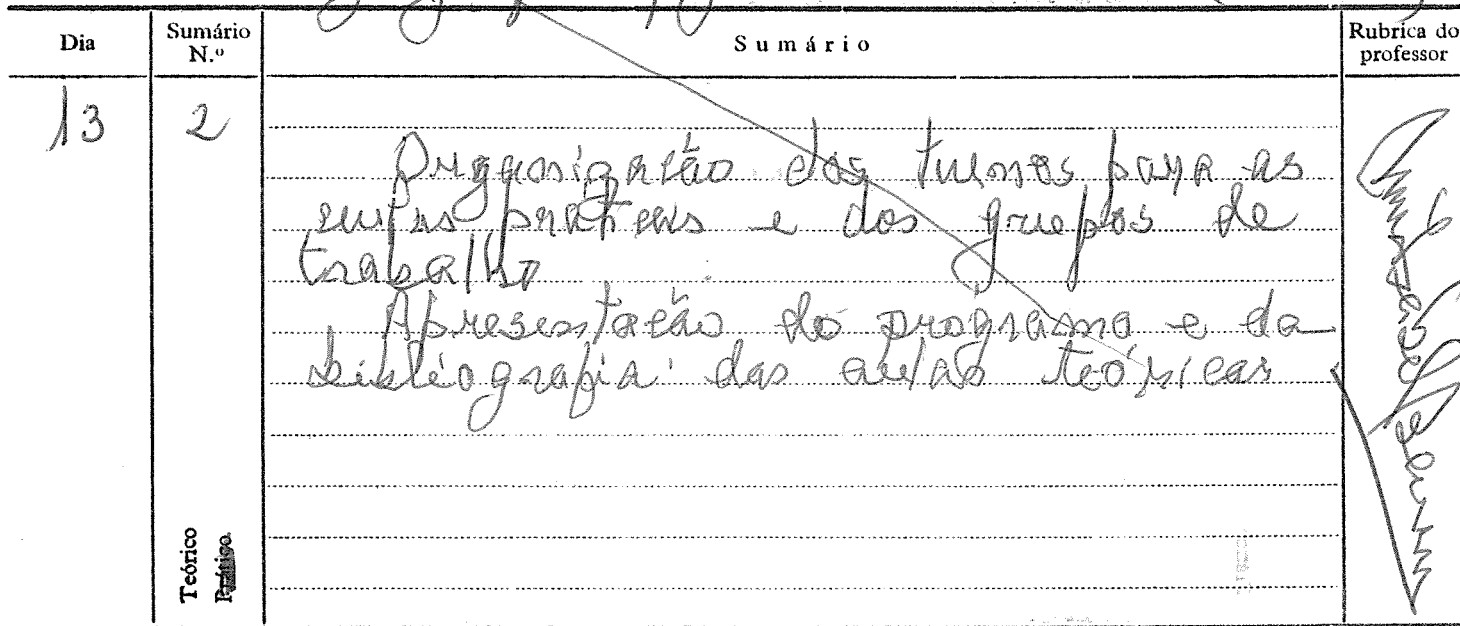 Dia
Sumário N.º
Sumário
Rubrica do professor
13
2
Organização das turmas para as
aulas práticas e dos grupos de
trabalho
Apresentação do programa e da
bibliografia das aulas teóricas
Teórico
Prático